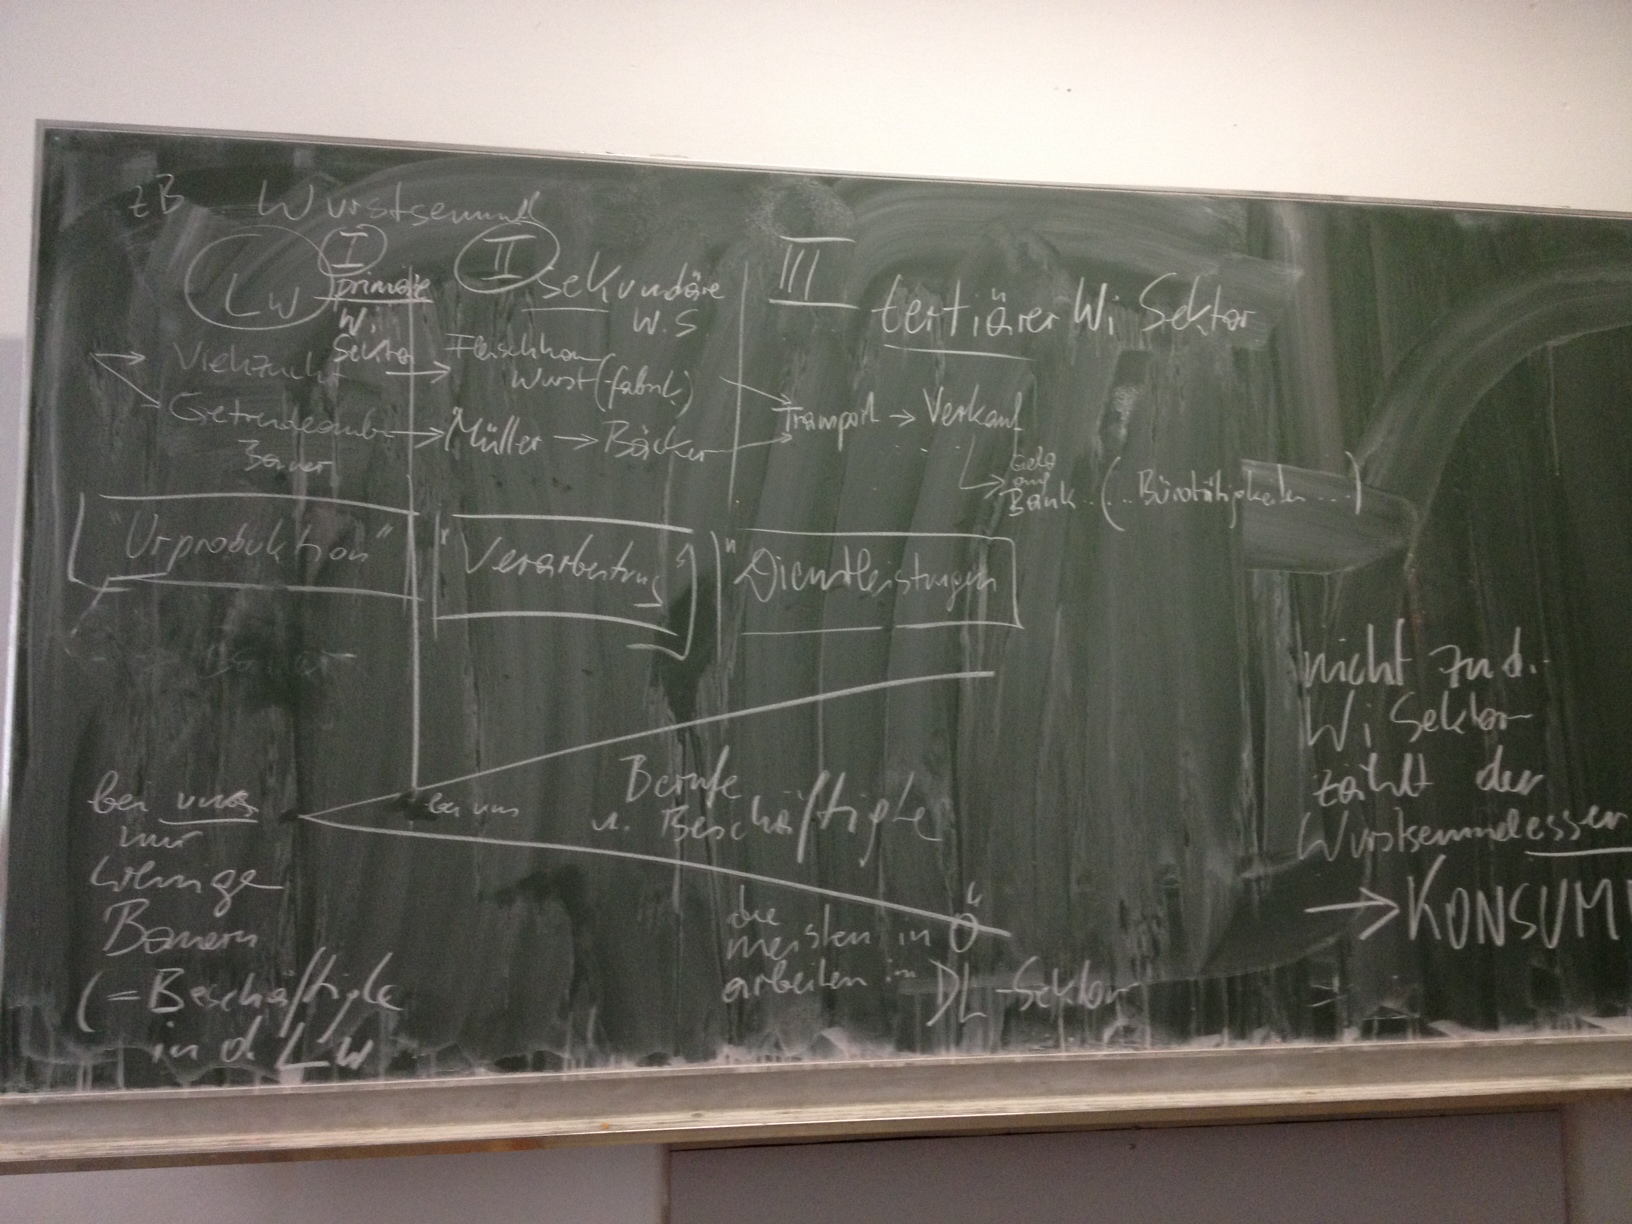 zB Wurstsemmel
LW
I
primäre
Wi
Sektor
Viehzucht
Getreideanbau
Bauer
"Urproduktion"
II
sekundäre
W.S
Fleischhau
Wurst(-fabrik)
Müller → Bäcker
"Verarbeitung"
III
tertiärer Wi Sektor
Transport → Verkauf
Geld
auf
Bank..(...Bürotätigkeiten...)
"Dienstleistungen
bei uns
nur
wenige
Bauern
(=Beschäftigte
in d. LW
bei uns
Berufe
u. Beschäftigte
die
meisten in Ö
arbeiten im DL-Sektor
nicht zu d.
Wi Sektor
zählt der
Wurstsemmelesser
→ KONSUM